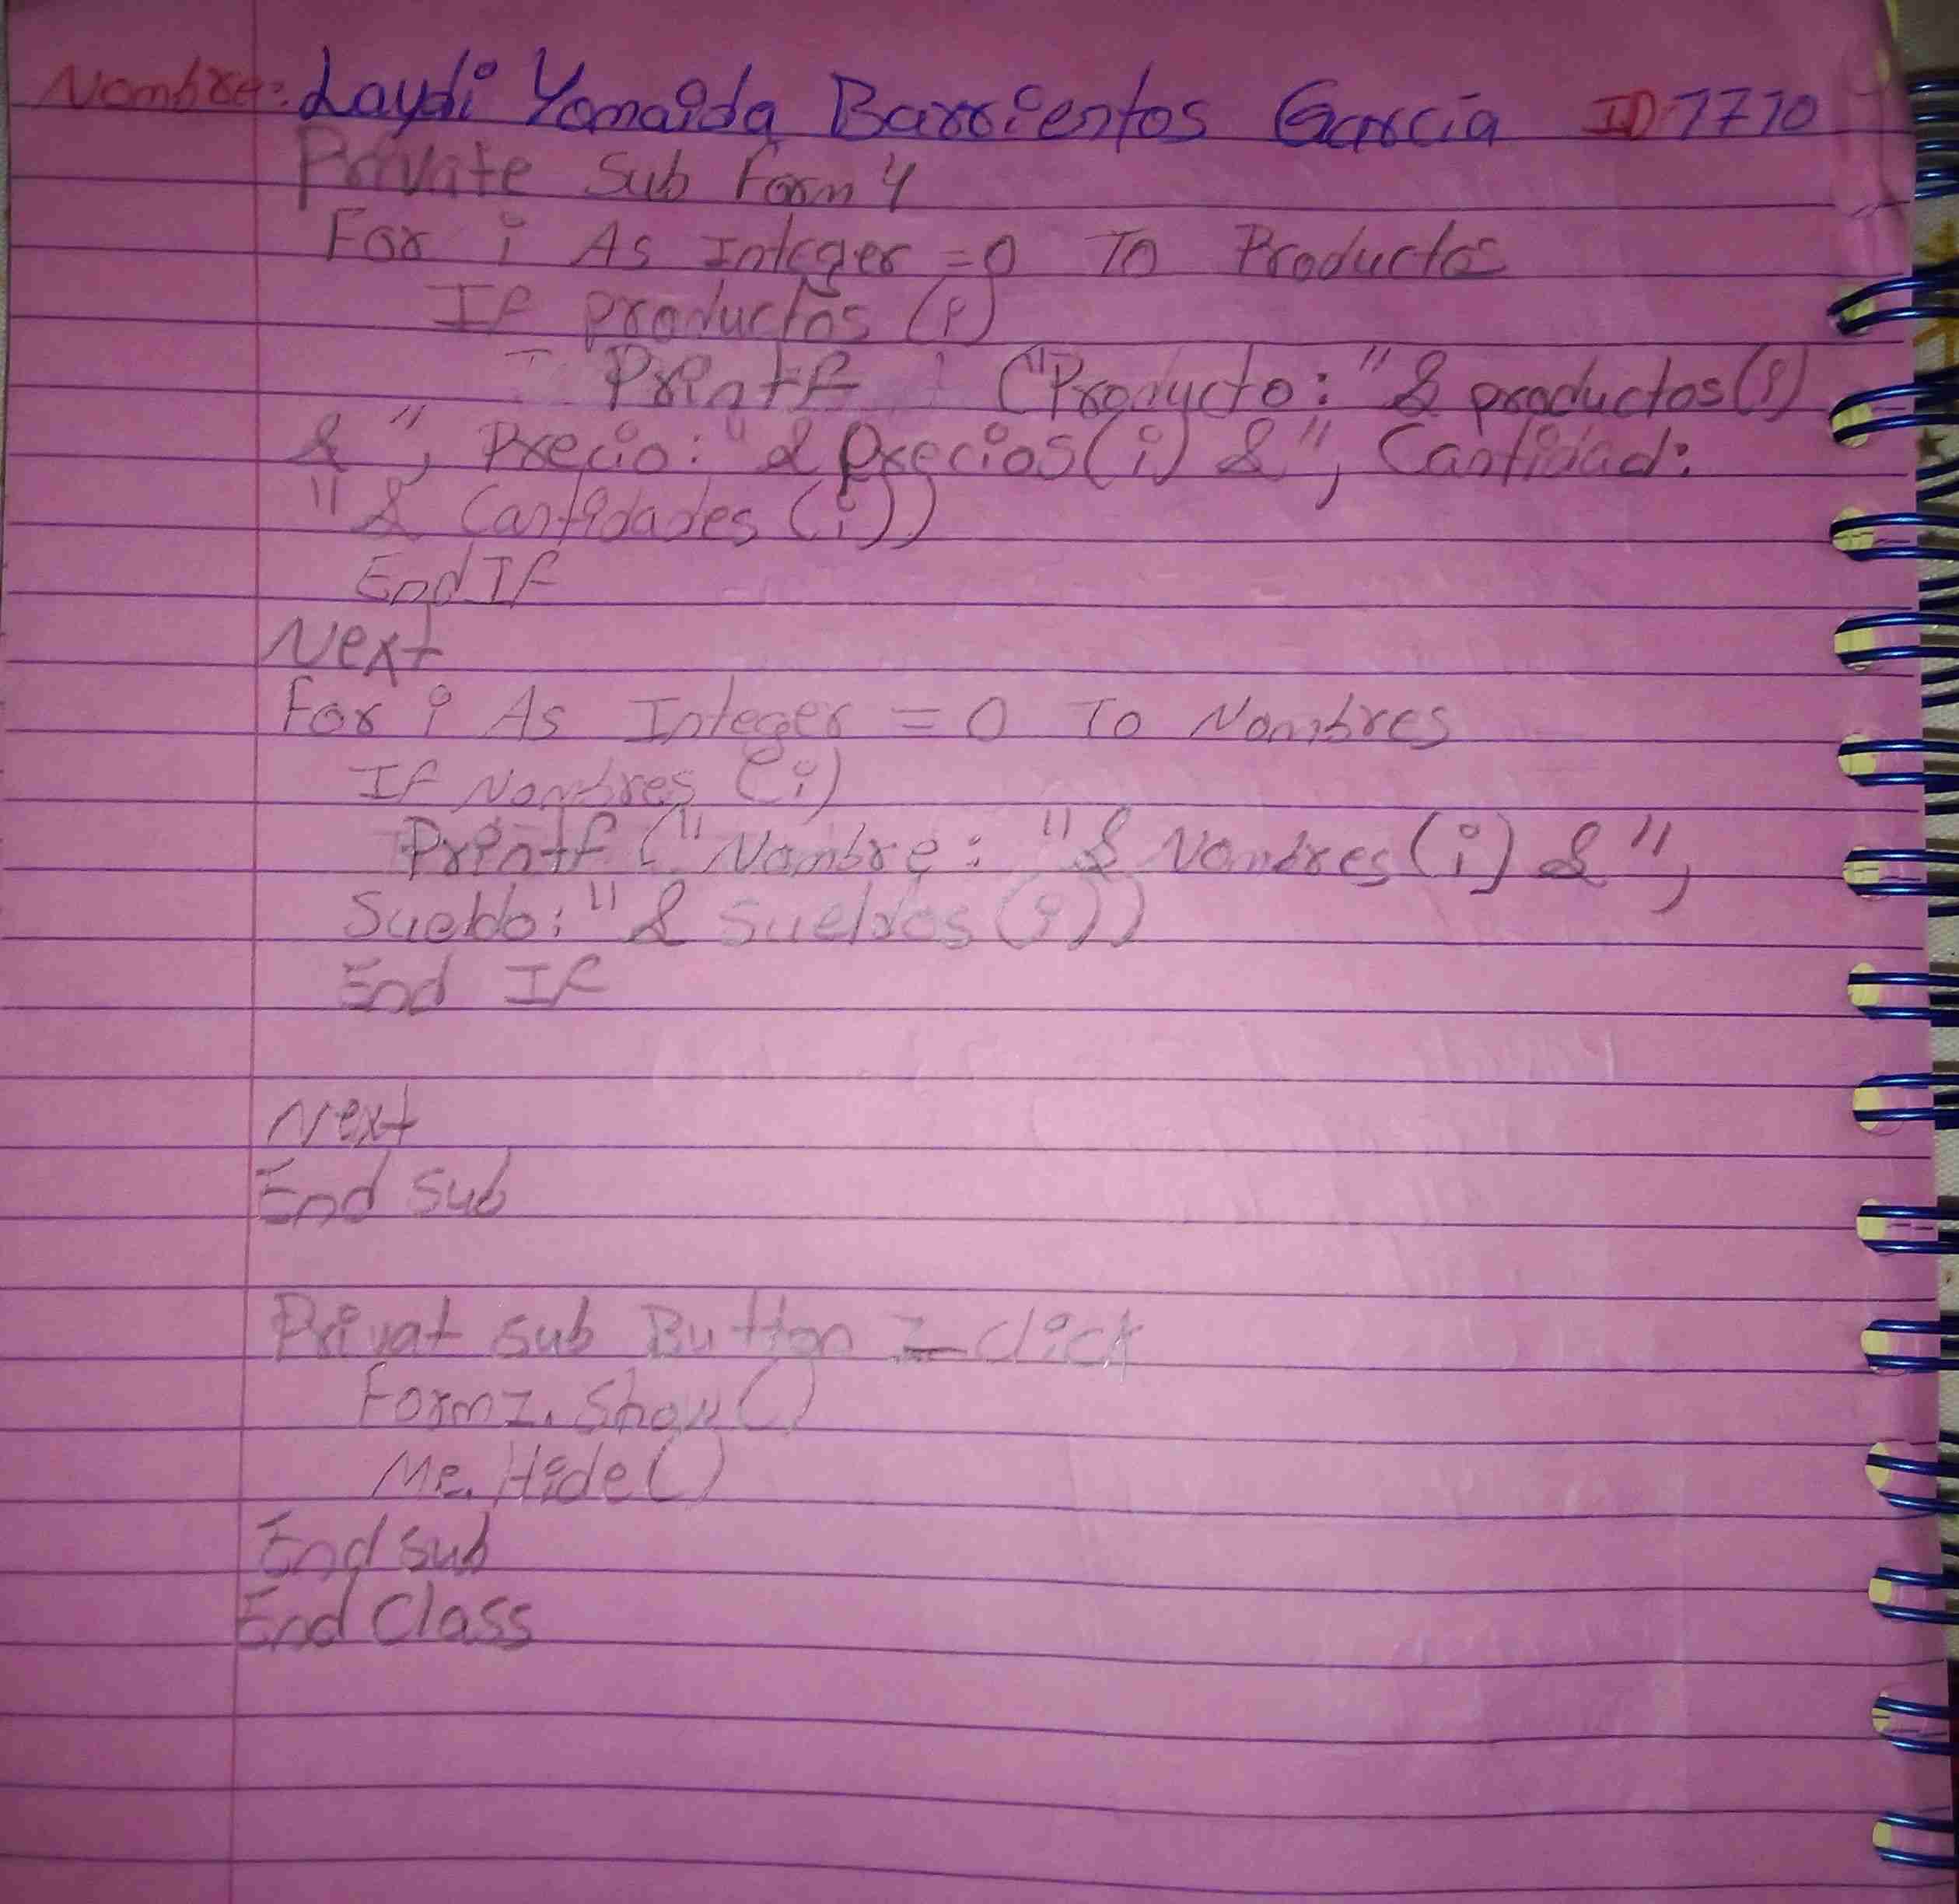 Nombre: Laydi Yomaida Barrientos García ID 7770
Private Sub Form 4
For i As Integer =0 To Productos
If productos (i)
Printf ("Producto: " & productos(i)
& ", Precio: " & precios(i) & ", Cantidad:
" & Cantidades (i))
End If
Next
For i As Integer = 0 To Nombres
If Nombres (i)
Printf ("Nombre: " & Nombres(i) & ",
Sueldo: " & sueldos (i))
End If
Next
End Sub
Privat sub Button 1_click
Form1. Show()
Me. Hide()
End sub
End Class